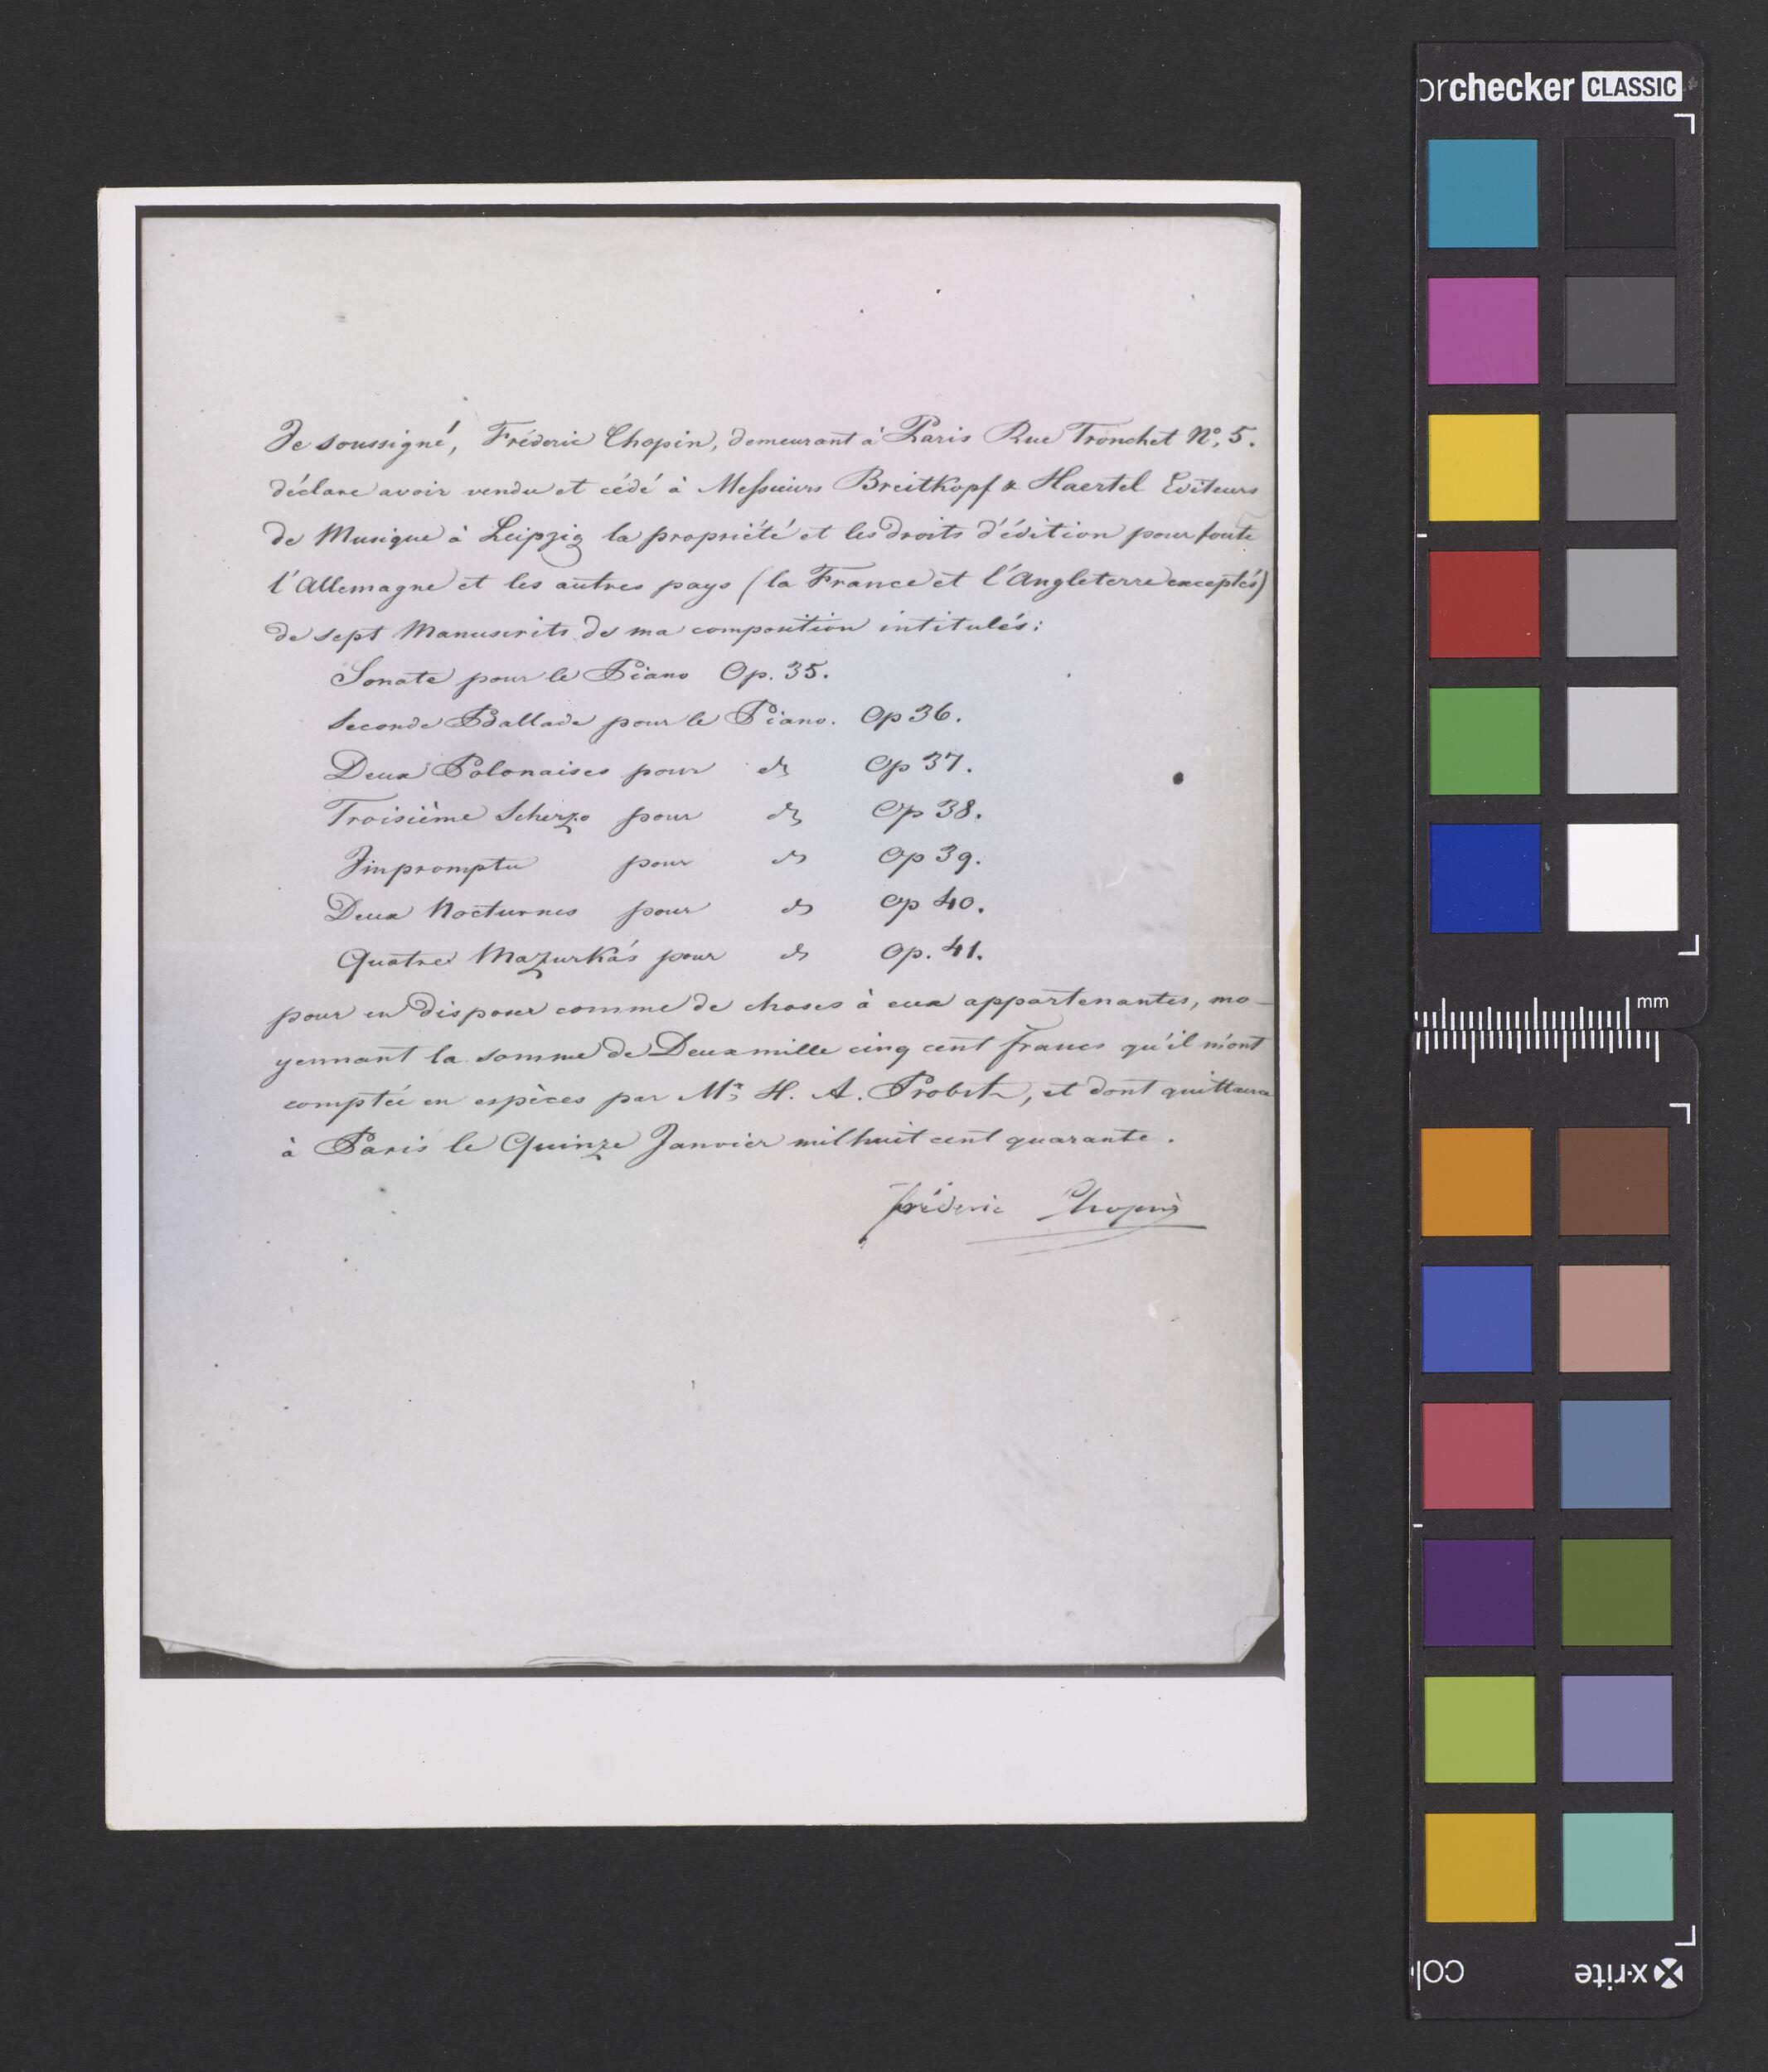 Je soussigné, Fréderic Chopin, demeurant à Paris Rue Tronchet No. 5.
déclare avoir vendu et cédé à Messieurs Breitkopf & Haertel Editeurs
de Musique à Leipzig la propriété et les droits d'édition pour toute
l'Allemagne et les autres pays (la France et l'Angleterre exceptés)
de sept Manuscrits de ma composition intitulés:
Sonate pour le Piano Op. 35.
Seconde Ballade pour le Piano. Op 36.
Deux Polonaises pour do Op 37.
Troisième Scherzo pour do Op 38.
Impromptu pour do Op 39.
Deux Nocturnes pour do Op 40.
Quatre Mazurkás pour do Op. 41.
pour en disposer comme de choses à eux appartenantes, mo-
yennant la somme de Deux mille cinq cent francs qu'il m'ont
comptée en espèces par Mr. H. A. Probst, et dont quittance
à Paris le Quinze Janvier mil huit cent quarante.
Fréderic Chopin
orchecker CLASSIC
mm
x-rite
col